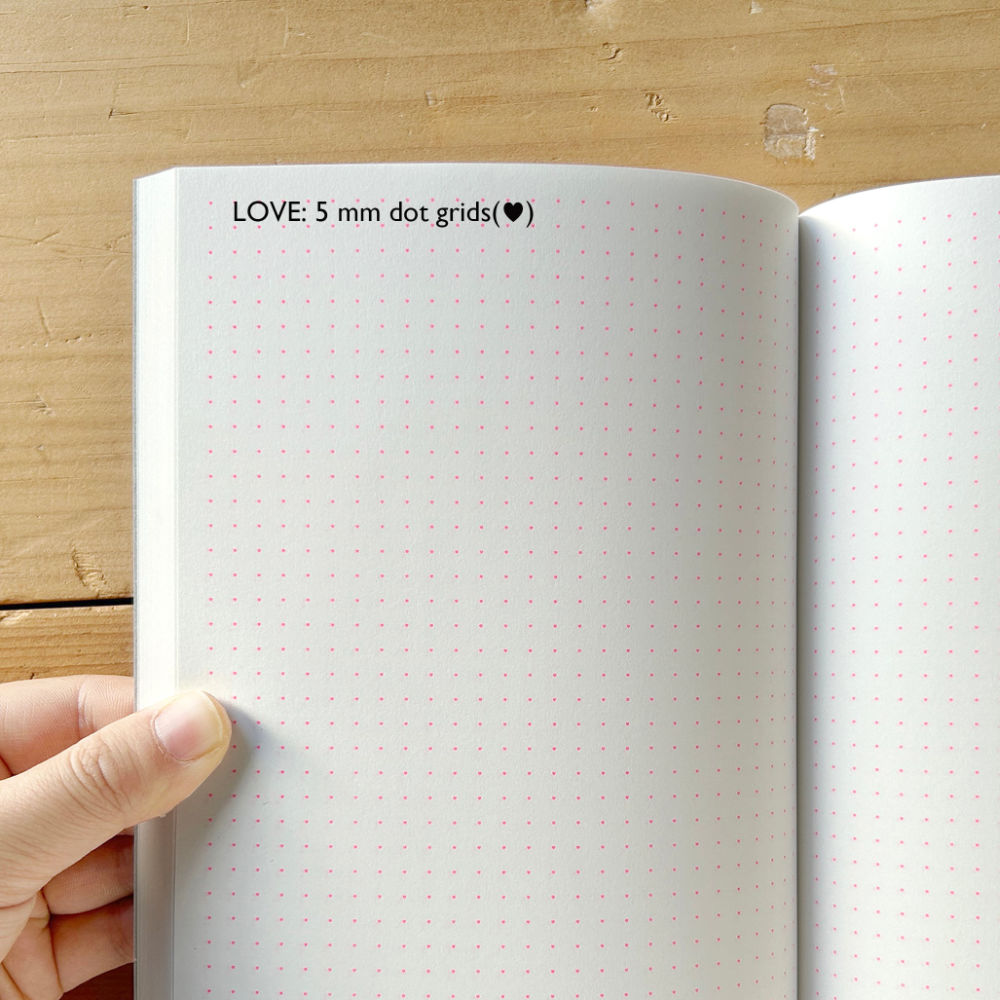 LOVE: 5 mm dot grids(♥)